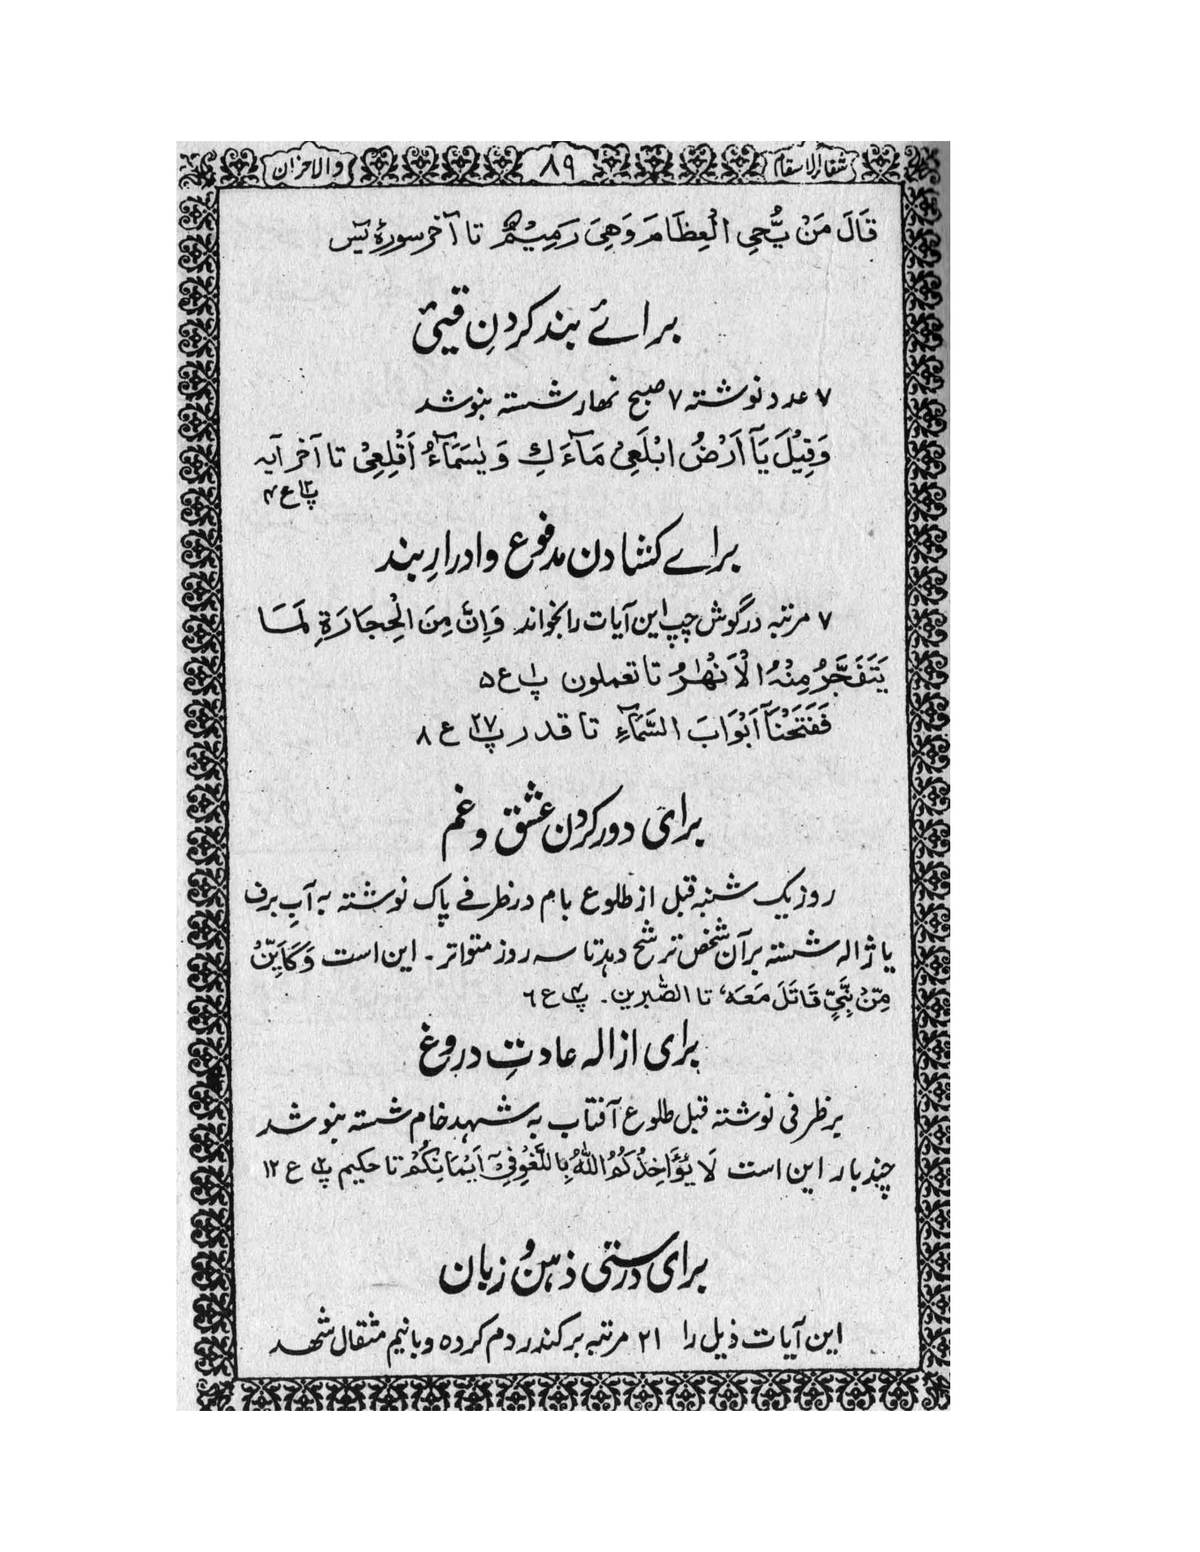 شفاء الاسقام ۸۹ والاحزان
قَالَ مَنْ یُّحْیِ الْعِظَامَ وَهِیَ رَمِیْمٌ تا آخر سورۂ یٰسٓ
برائے بند کردنِ قیئ
۷ عدد نوشته ۷ صبح نهار شسته بنوشد
وَقِیْلَ یَآ اَرْضُ ابْلَعِیْ مَآءَكِ وَیٰسَمَآءُ اَقْلِعِیْ تا آخر آیه
پ۱۲ ع ۴
برائے کشادن مدفوع و ادرارِ بند
۷ مرتبه در گوش چپ این آیات را بخواند وَاِنَّ مِنَ الْحِجَارَةِ لَمَا
یَتَفَجَّرُ مِنْهُ الْاَنْهٰرُ تا تعملون پ۱ ع ۵
فَفَتَحْنَآ اَبْوَابَ السَّمَآءِ تا قدر پ۲۷ ع ۸
برای دور کردن عشق و غم
روز یک شنبه قبل از طلوع بام در ظرفے پاک نوشته به آبِ برف
یا ژاله شسته بر آن شخص ترشح دهد تا سه روز متواتر۔ این است وَكَاَیِّنْ
مِّنْ نَّبِیٍّ قَاتَلَ مَعَهٗ تا الصّٰبرین۔ پ۴ ع ٦
برای ازاله عادتِ دروغ
بر ظرفی نوشته قبل طلوع آفتاب به شهد خام شسته بنوشد
چند بار این است لَا یُؤَاخِذُکُمُ اللّٰهُ بِاللَّغْوِ فِیْٓ اَیْمَانِکُمْ تا حکیم پ۲ ع ۱۲
برای درستی ذهن و زبان
این آیات ذیل را ۲۱ مرتبه بر کندر دم کرده و با نیم مثقال شهد